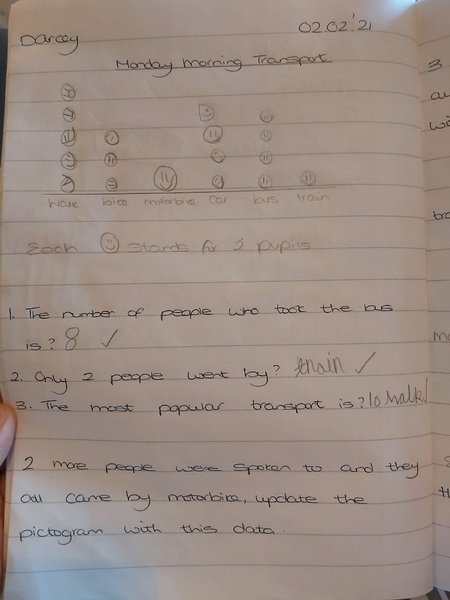 Darcey
02.02.'21
Monday morning Transport
walk bike motorbike car bus train
Each stands for 2 pupils
1. The number of people who took the bus
is? 8 ✓
2. Only 2 people went by? train ✓
3. The most popular transport is? 10 walk ✓
2 more people were spoken to and they
all came by motorbike, update the
pictogram with this data.
3